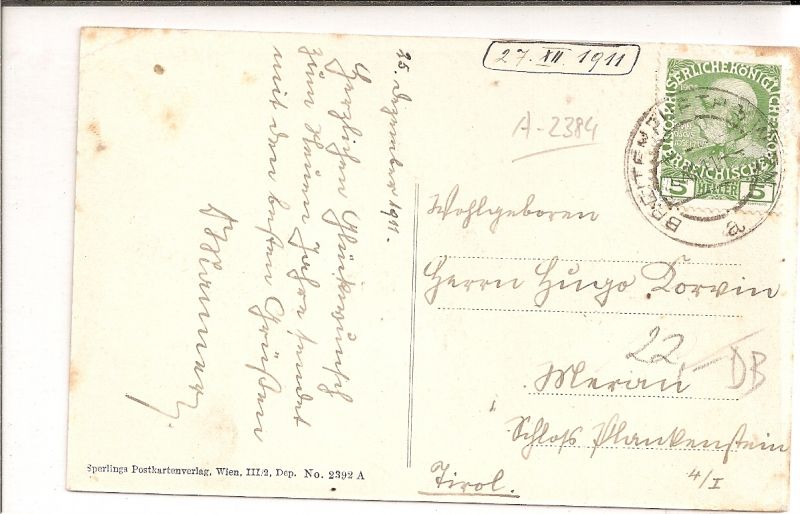 25. Dezember 1911.
Herzlichen Glückwunsch
zum Neuen Jahre sendet
mit den besten Grüßen
27. XII 1911
A-2384
KAISERLICHE KÖNIGLICHE
ÖSTERREICHISCHE
5 HELLER 5
BREITEN
Wohlgeboren
Herrn Hugo Korvin
22.
DB
Meran
Schloss Plankenstein
4/I
Tirol.
Sperlings Postkartenverlag, Wien, III/2, Dep. No. 2392 A